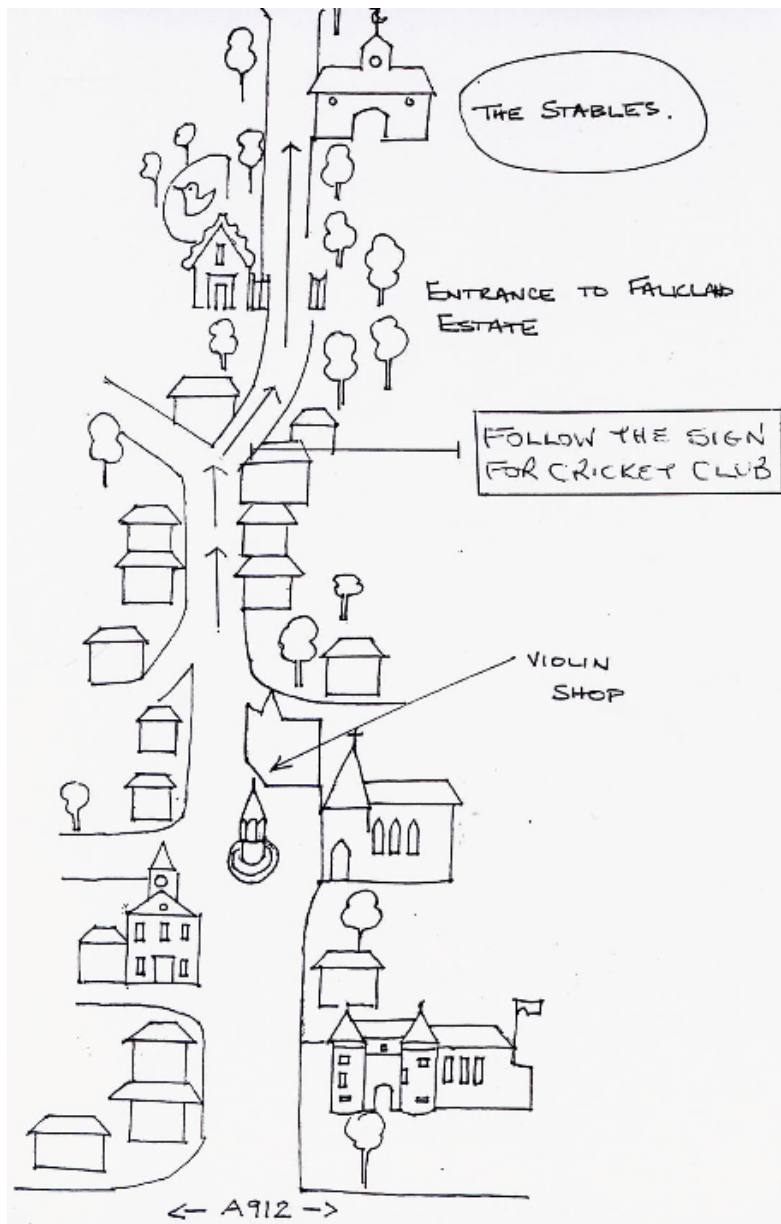 THE STABLES.
ENTRANCE TO FALKLAD
ESTATE
FOLLOW THE SIGN
FOR CRICKET CLUB
VIOLIN
SHOP
<- A912 ->